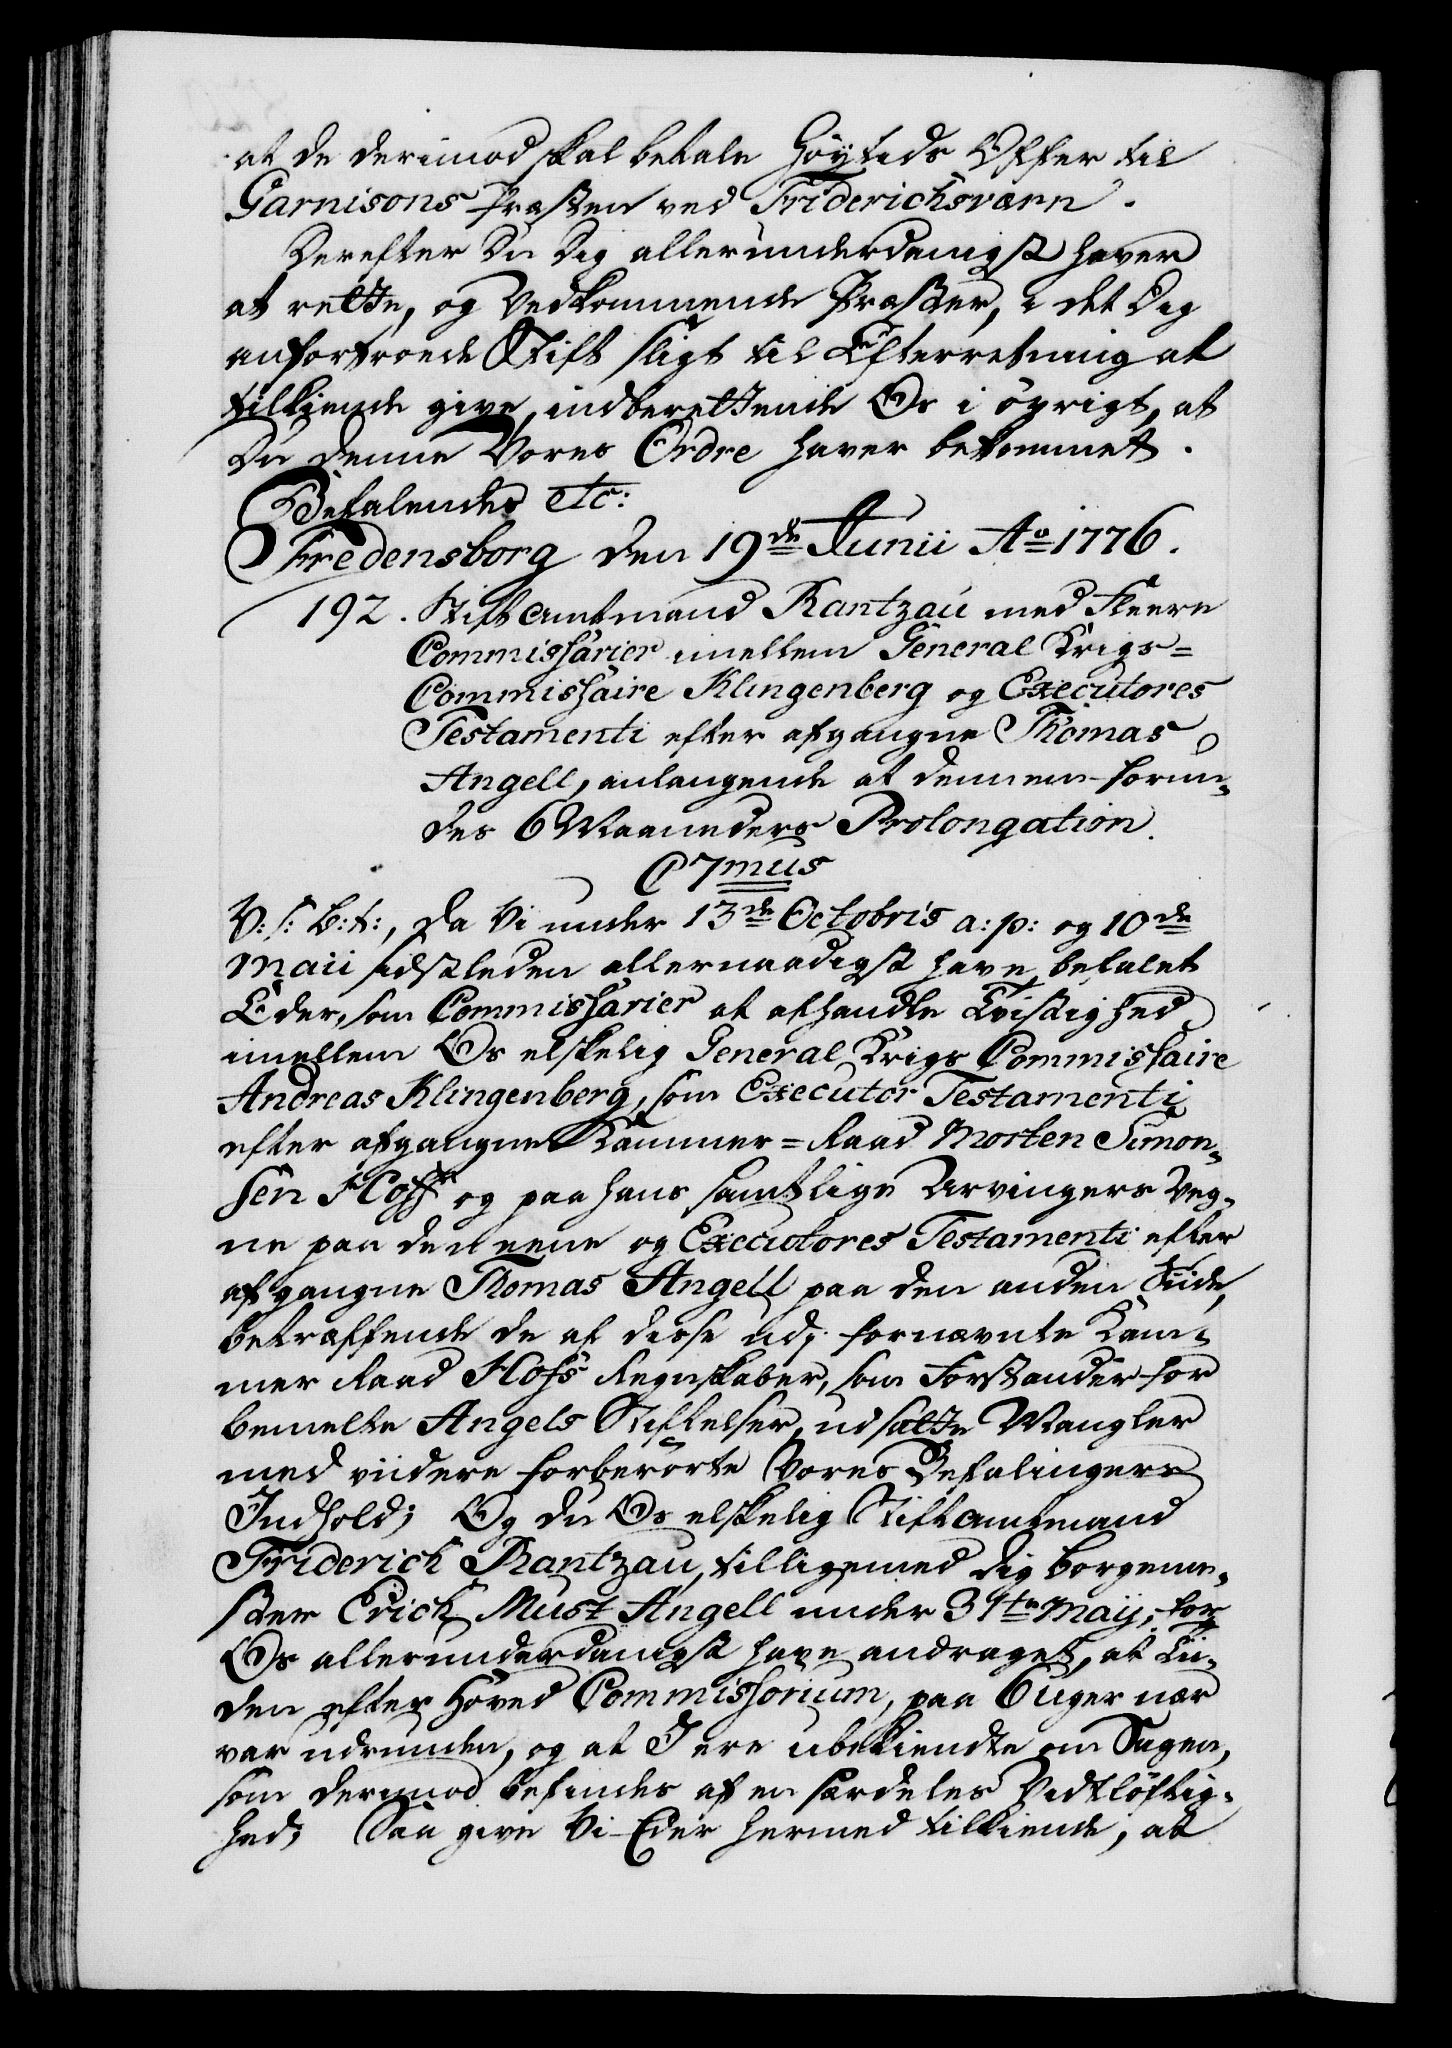 at de derimod skal betale Høytids Offer til
Garnisons Præsten ved Friderichsværn.
Derefter Du Dig allerunderdanigst haver
at rette, og Vedkommende Præster, i det Dig
anfortroede Stift sligt til Efterretning at
tilkiende give, indberettende Os i øvrigt, at
Du denne Vores Ordre haver bekommet.
Befalendes etc:
Fredensborg den 19de Junii Ao 1776.
192. Stiftamtmand Rantzau med Fleere
Commissarier imellem General Krigs=
Commissaire Klingenberg og Executores
Testamenti efter afgangne Thomas
Angell, anlangende at dennem forun-
des 6 Maaneders Prolongation.
C 7mus
V: S: B: t:, Da Vi under 13de Octobris a: p: og 10de
Maii sidstleden allernaadigst have befalet
Eder, som Commissarier at afhandle Tvistighed
imellem Os elskelig General Krigs Commissaire
Andreas Klingenberg, som Executor Testamenti
efter afgangne Kammer=Raad Morten Simon-
sen Hoff og paa hans samtlige Arvingers Veg-
ne paa den eene og Executores Testamenti efter
afgangne Thomas Angell paa den anden Siide,
betræffende de af disse udj fornævnte Kam-
mer Raad Hofs Regnskaber, som Forstander for
bemelte Angels Stiftelser, udsatte Mangler
med viidere forberørte Vores Befalingers
Indhold; Og du Os elskelig Stiftamtmand
Friderich Rantzau, tilligemed dig Borgeme-
ster Erich Must Angell under 31te Maij, for
Os allerunderdanigst have andraget, at Tii-
den efter Hoved Commissorium, paa 6 Uger nær
var udrunden, og at I ere ubekiendte om Sagen,
som derimod befindes af en særdeles Vidtløftig-
hed; Saa give Vi Eder hermed tilkiende, at